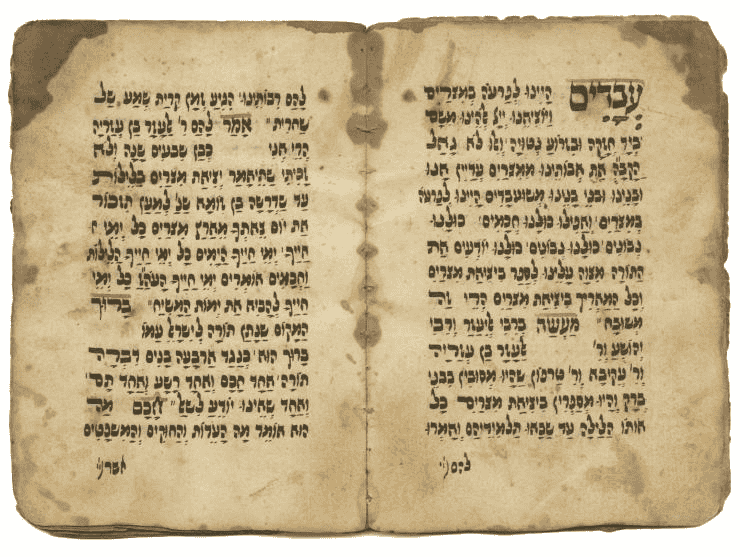 עֲבָדִים הָיִינוּ לְפַרְעֹה בְּמִצְרַיִם
וְיוֹצִיאֵנוּ יי' אלֹהֵינוּ מִשָּׁם
בְּיָד חֲזָקָה וּבִזְרוֹעַ נְטוּיָה וְאִלּוּ לֹא גָאַל
הַקָּבָּ"ה אֶת אֲבוֹתֵינוּ מִמִּצְרַיִם עֲדַיִין אָנוּ
וּבָנֵינוּ וּבְנֵי בָנֵינוּ מְשׁוּעְבָּדִים הָיִינוּ לְפַרְעֹה
בְּמִצְרַיִם וַאֲפִילוּ כּוּלָּנוּ חֲכָמִים כּוּלָּנוּ
נְבוֹנִים כּוּלָּנוּ כּוּלָּנוּ יוֹדְעִים אֶת
הַתּוֹרָה מִצְוָה עָלֵינוּ לְסַפֵּר בִּיצִיאַת מִצְרַיִם
וְכָל הַמַּאֲרִיךְ בִּיצִיאַת מִצְרַיִם הֲרֵי זֶה
מְשׁוּבָּח" מַעֲשֶׂה בְּרַבִּי לִיעֶזֶר וְרַבִּי
יְהוֹשֻׁעַ וְר' לְעָזָר בֶּן עֲזַרְיָה
וְר' עֲקִיבָא וְר' טַרְפוֹן שֶׁהָיוּ מְסוּבִּין בִּבְנֵי
בְרַק וְהָיוּ מְסַפְּרִין בִּיצִיאַת מִצְרַיִם כָּל
אוֹתוֹ הַלַּיְלָה עַד שֶׁבָּאוּ תַלְמִידֵיהֶם וְאָמְרוּ
להם
לָהֶם רַבּוֹתֵינוּ הִגִּיעַ זְמַן קְרִיַת שְׁמַע שֶׁל
שַׁחֲרִית" אָמַר לָהֶם ר' לְעָזָר בֶּן עֲזַרְיָה
הֲרֵי אֲנִי כְּבֶן שִׁבְעִים שָׁנָה וְלֹא
זָכִיתִי שֶׁתֵּיאָמֵר יְצִיאַת מִצְרַיִם בַּלֵּילוֹת
עַד שֶׁדְּרָשָׁהּ בֶּן זוֹמָא שֶׁנֶּ' לְמַעַן תִּזְכּוֹר
אֶת יוֹם צֵאתְךָ מֵאֶרֶץ מִצְרַיִם כָּל יְמֵי
חַיֶּיךָ יְמֵי חַיֶּיךָ הַיָּמִים כָּל יְמֵי חַיֶּיךָ הַלֵּילוֹת
וַחֲכָמִים אוֹמְרִים יְמֵי חַיֶּיךָ הָעוֹלָ' הַזֶּה כָּל יְמֵי
חַיֶּיךָ לְהָבִיא אֶת יְמוֹת הַמָּשִׁיחַ" בָּרוּךְ
הַמָּקוֹם שֶׁנָּתַן תּוֹרָה לְיִשְׂרָאֵל עַמּוֹ
בָּרוּךְ הוּא כְּנֶגֶד אַרְבָּעָה בָנִים דִּבְּרָה
תוֹרָה אֶחָד חָכָם וְאֶחָד רָשָׁע וְאֶחָד תָּם
וְאֶחָד שֶׁאֵינוֹ יוֹדֵעַ לִשְׁאַל" חָכָם מַה
הוּא אוֹמֵר מָה הָעֵדוֹת וְהַחוּקִּים וְהַמִּשְׁפָּטִים
אשר